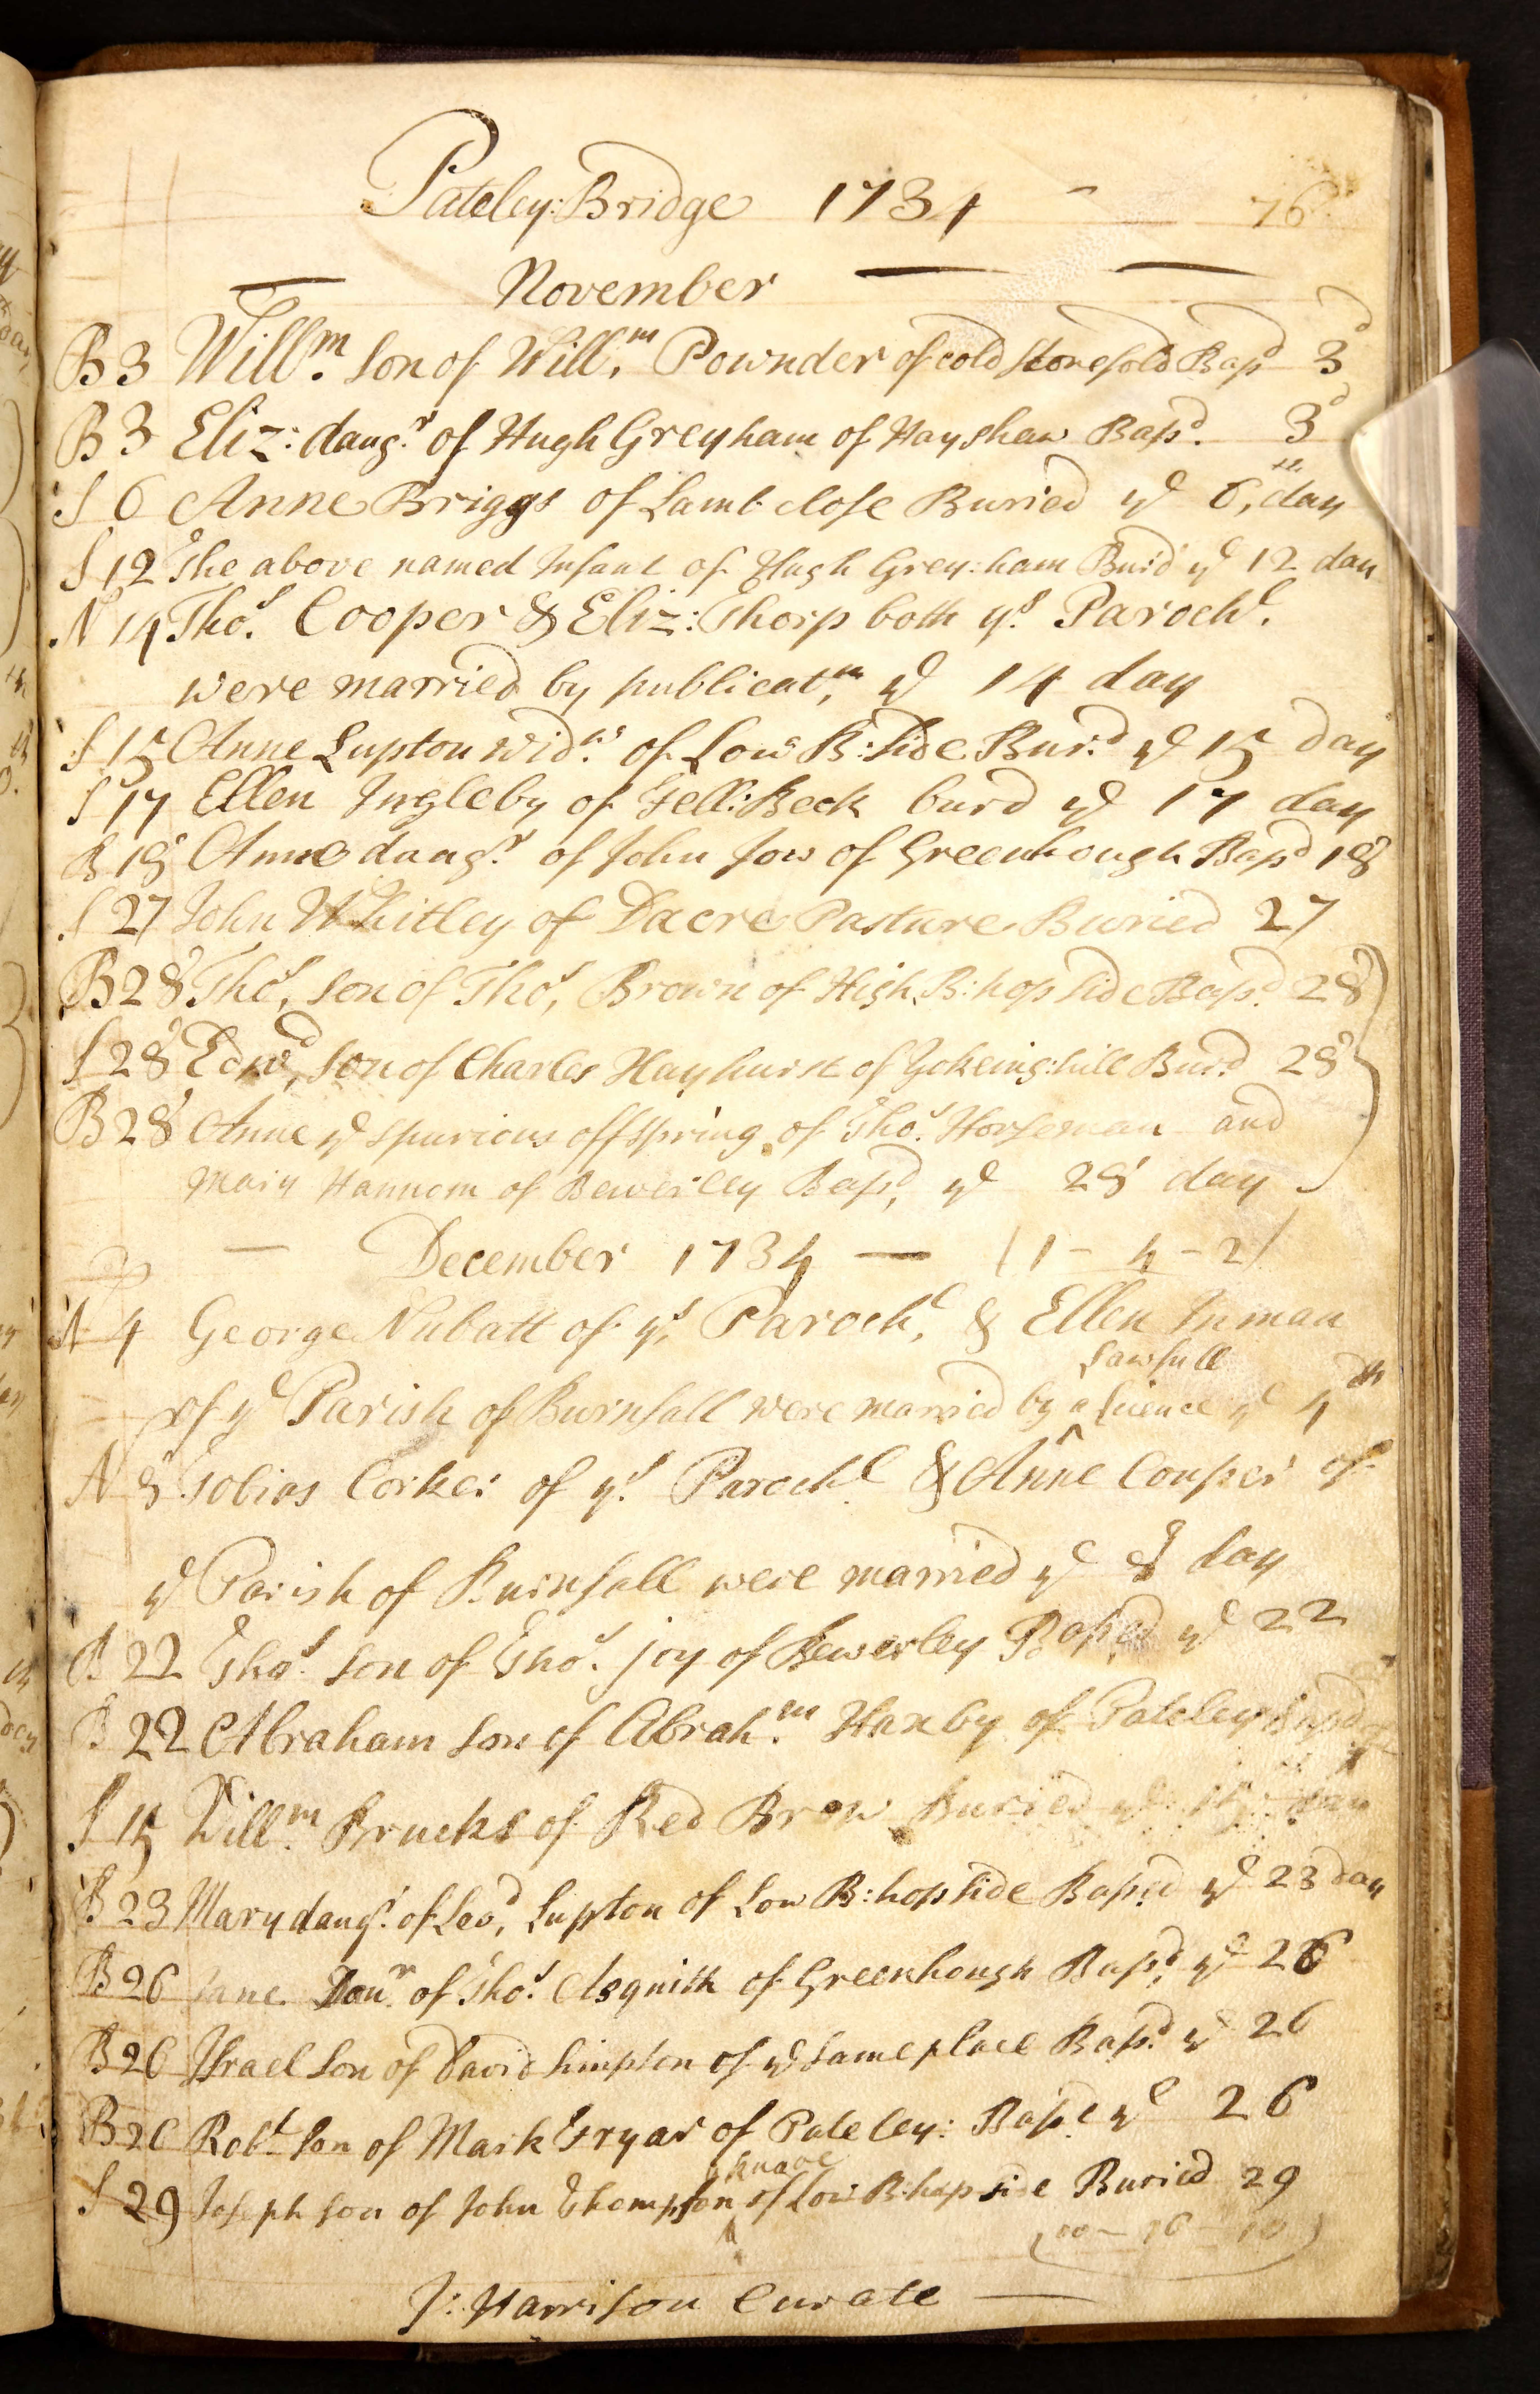 Pateley: Bridge 1734 76
November
B 3 Will.m Son of Will.m Pownder of cold stonefold Bap.d 3d
B 3 Eliz: daug.r of Hugh Greyham of Hayshaw Bap.d 3d
S 6 Anne Briggs of Lamb close Buried ye 6th day
S 12 The above named Infant of Hugh Grey:ham Burd ye 12 day
N 14 Tho.s Cooper & Eliz: Thorp both ys Paroch.l
were married by publicat.m ye 14 day
S 15 Anne Lupton Wid.w of Low B:side Bur.d ye 15 day
S 17 Ellen Ingleby of Fell:Beck burd ye 17 day
B 18 Anne daug.r of John Jow of Greenhough Bapd 18
S 27 John Whitley of Dacre Pasture Buried 27
B 28 Tho.s son of Tho.s Brown of High B:hopside Bap.d 28
S 28 Edw.d son of Charles Hayhurst of Yokeing:hill Bur.d 28
B 28 Anne ye spurious offspring of Tho.s Horseman and
Mary Hannom of Bewerley Bap.d ye 28 day
December 1734 (1 - 4 - 2)
N 4 George Nubatt of ys Paroch.l & Ellen Inman
Lawfull
of ye Parish of Burnsall were married by a Licence ye 4th
N 8 Tobias Corker of ys Paroch.l & Anne Couper of
ye Parish of Burnsall were married ye 8 day
B 22 Tho.s son of Tho.s joy of Bewerley Bap.d ye 22
B 22 Abraham son of Abrah.m Haxby of Pateley Bapd
S 15 Will.m Brucks of Red Brow Buried ye 15 day
B 23 Mary daug.r of Leo.d Lupton of Low B:hopside Bap.d ye 23 day
B 26 Jane Dau.r of Tho.s Asquith of Greenhough Bap.d ye 26
B 26 Israel Son of David Simpson of ye same place Bap.d ye 26
B 26 Rob.t son of Mark Fryar of Pateley: Bap.d ye 26
a knave
S 29 Joseph son of John Thompson of Low B:hopside Buried 29
(00 - 16 - 10)
J: Harrison Curate